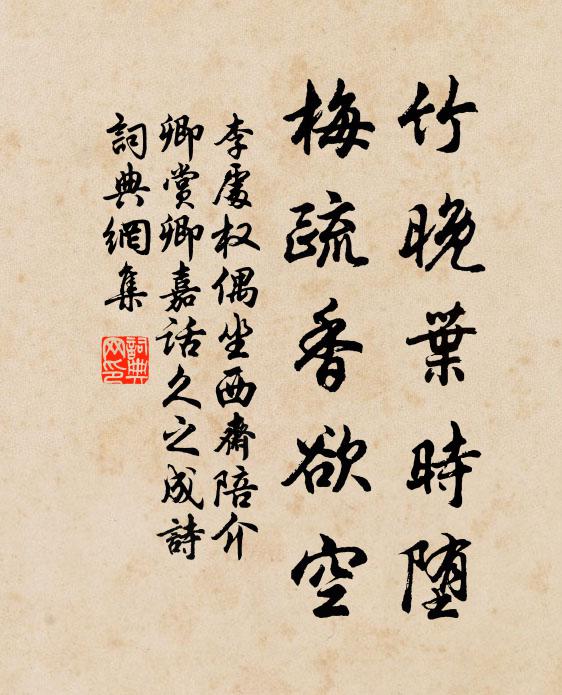 竹晚葉時堕
梅疏香欲空
李處权偶坐西齋陪介
卿賞卿嘉話久之成詩
詞典網集
詞典網印